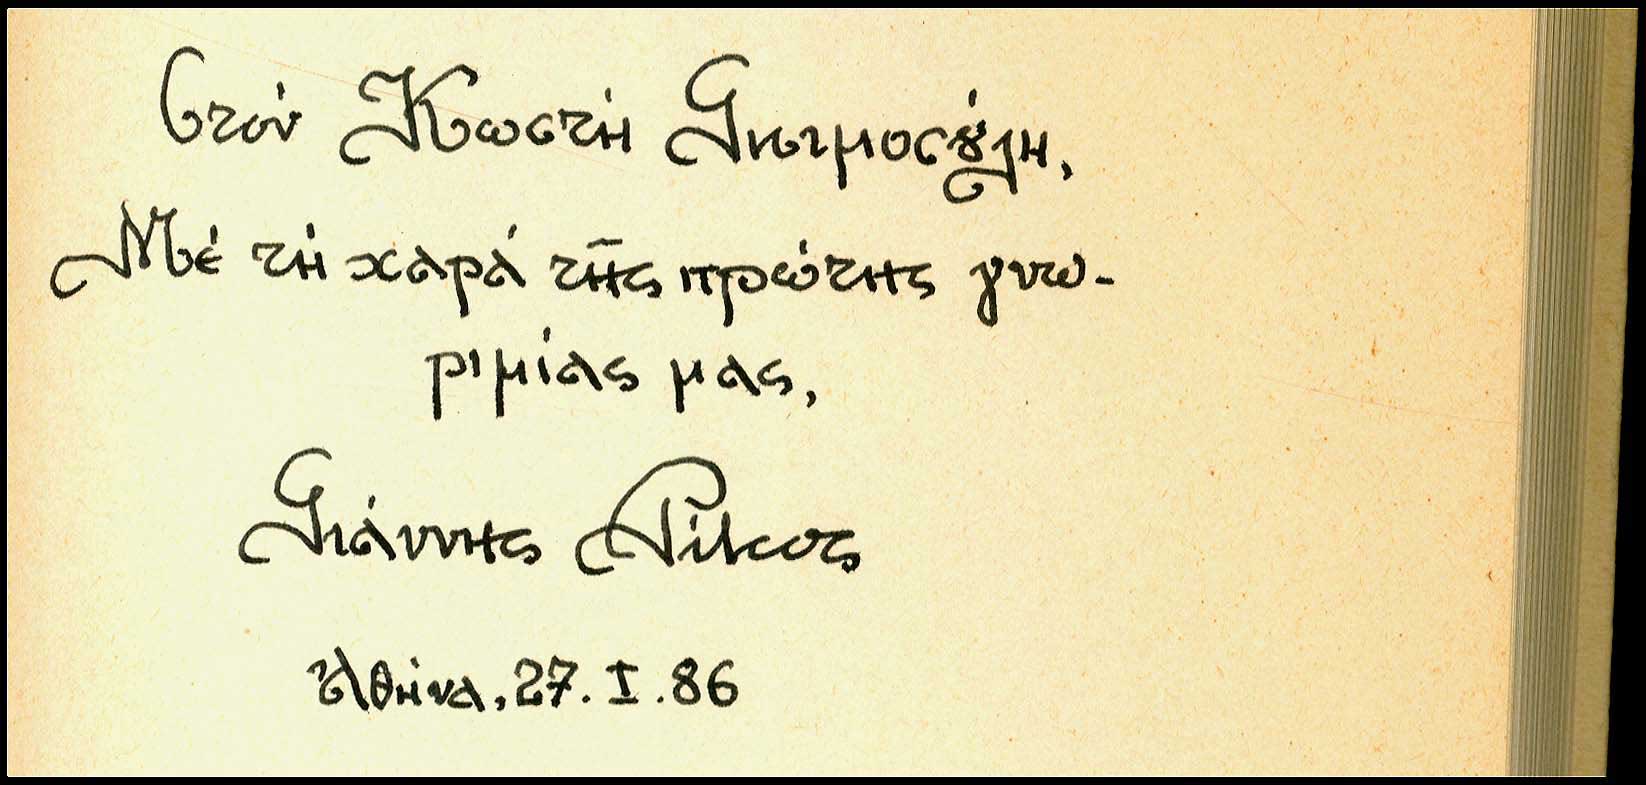 Στόν Κωστή Γκιμοσούλη,
Μέ τή χαρά τῆς πρώτης γνω-
ριμίας μας,
Γιάννης Ρίτσος
Ἀθήνα, 27. I. 86